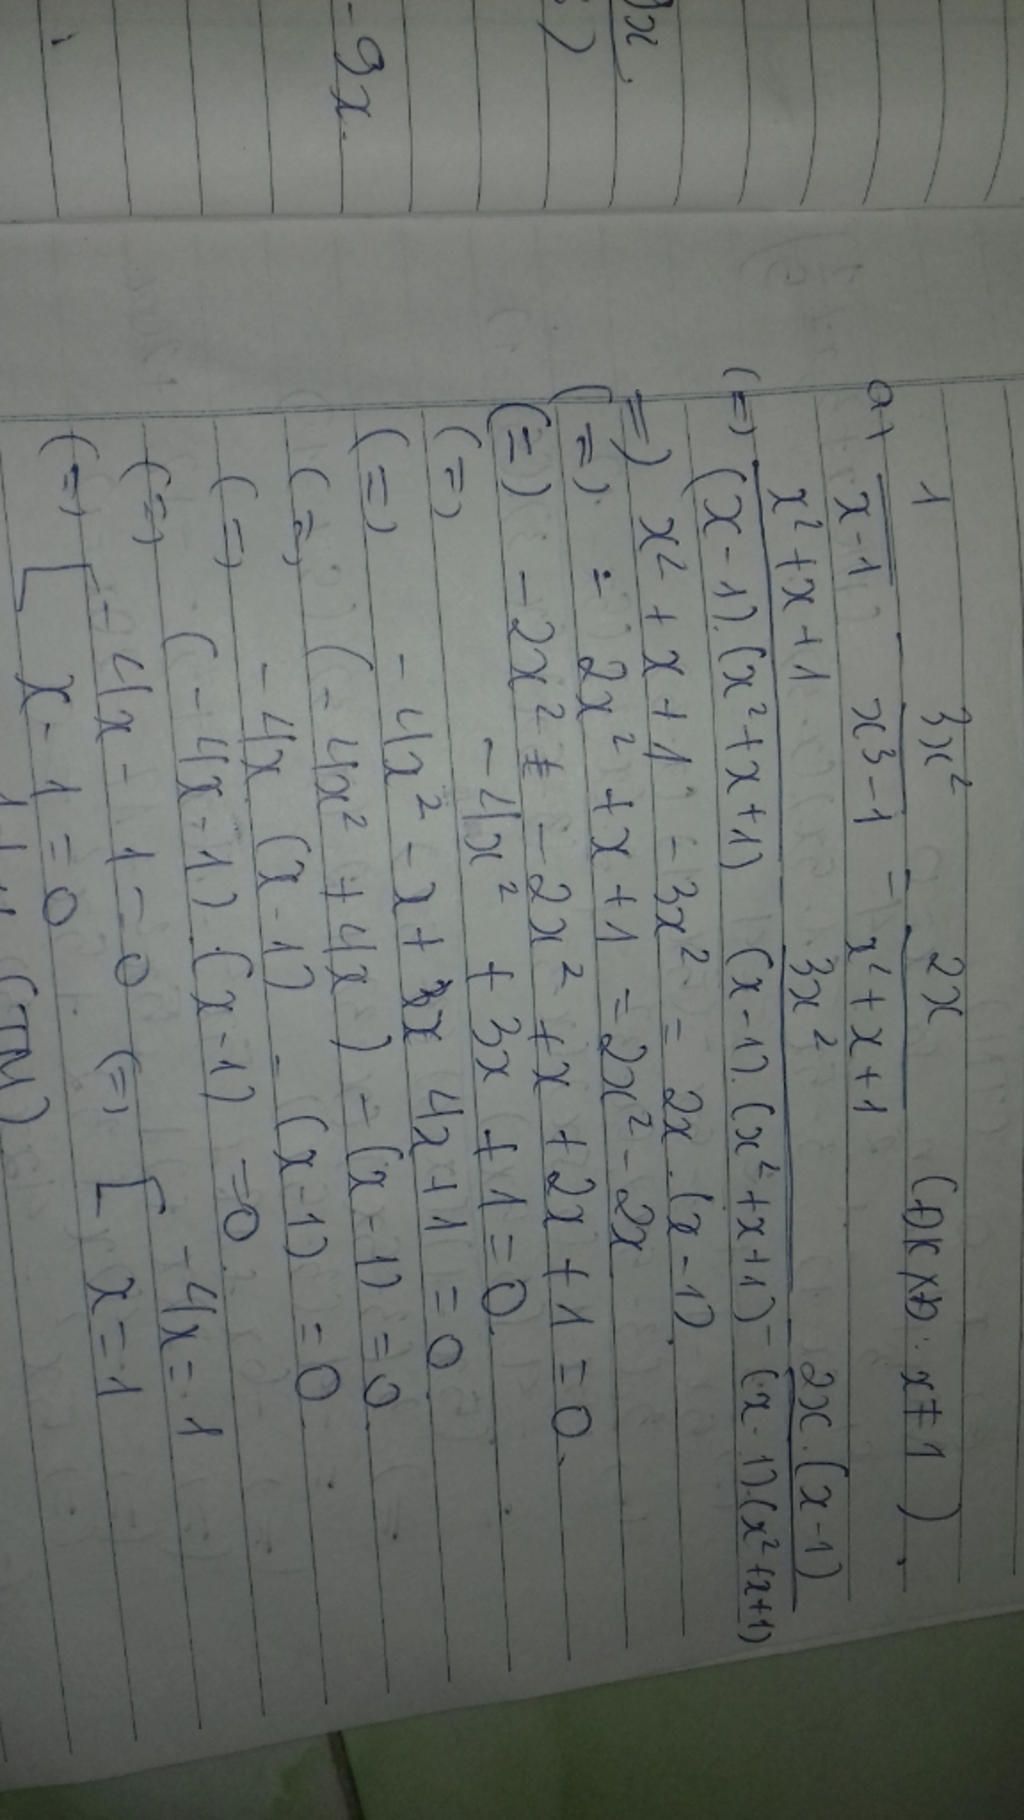 9x.
)
- 9x.
1 3x² 2x
a) x-1 x³-1 = x²+x+1 (ĐKXĐ: x≠1)
x²+x+1 3x² 2x.(x-1)
(=) (x-1).(x²+x+1) (x-1).(x²+x+1) = (x-1).(x²+x+1)
=) x²+x+1 - 3x² = 2x.(x-1)
(=) - 2x²+x+1 = 2x²-2x
(=) -2x² - 2x² +x + 2x + 1 = 0.
(=) -4x² + 3x + 1 = 0.
(=) -4x² - x + 4x + 1 = 0
(=) (-4x² + 4x) - (x-1) = 0
(=) -4x (x-1) - (x-1) = 0
(=) (-4x-1).(x-1) = 0
(=) [ -4x - 1 = 0 (=) [ -4x = 1
x - 1 = 0 x = 1
(TM)